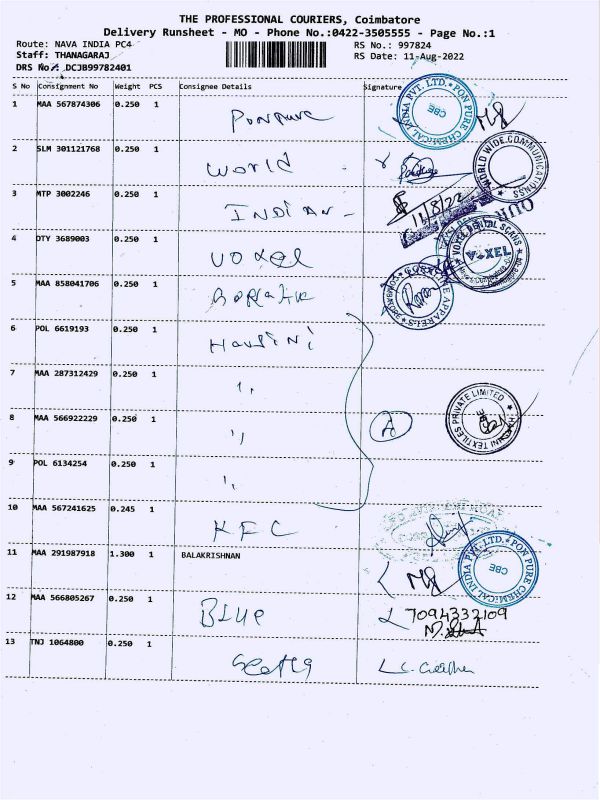 THE PROFESSIONAL COURIERS, Coimbatore
Delivery Runsheet - MO - Phone No.:0422-3505555 - Page No.:1
Route: NAVA INDIA PC4 RS No.: 997824
Staff: THANAGARAJ RS Date: 11-Aug-2022
DRS No.: DCJB99782401
S No Consignment No Weight PCS Consignee Details Signature
1 MAA 567874306 0.250 1 PONPURE
PON PURE CHEMICAL INDIA PVT. LTD. CBE
2 SLM 301121768 0.250 1 World
WORLD WIDE COMMUNICATIONSS
3 MTP 3002246 0.250 1 INDIAN - 11/8/22
4 DTY 3689003 0.250 1 VOXEL
VOXEL DIGITAL SCANS VOXEL
5 MAA 858041706 0.250 1
6 POL 6619193 0.250 1
7 MAA 287312429 0.250 1 ,,
8 MAA 566922229 0.250 1 ,,
TEXTILES PRIVATE LIMITED
9 POL 6134254 0.250 1 ,,
10 MAA 567241625 0.245 1 KFC
11 MAA 291987918 1.300 1 BALAKRISHNAN
PON PURE CHEMICAL INDIA PVT. LTD. CBE
12 MAA 566805267 0.250 1 BLUE 7094332109
13 TNJ 1064800 0.250 1